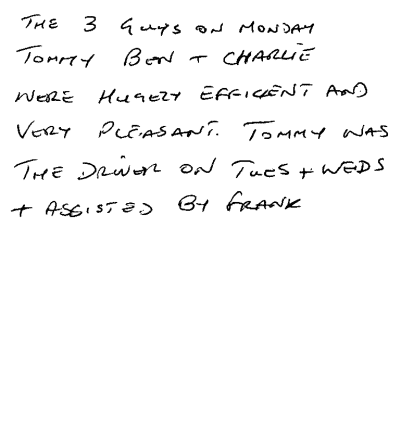 THE 3 GUYS ON MONDAY
TOMMY BEN + CHARLIE
WERE HUGELY EFFICIENT AND
VERY PLEASANT. TOMMY WAS
THE DRIVER ON TUES + WEDS
+ ASSISTED BY FRANK